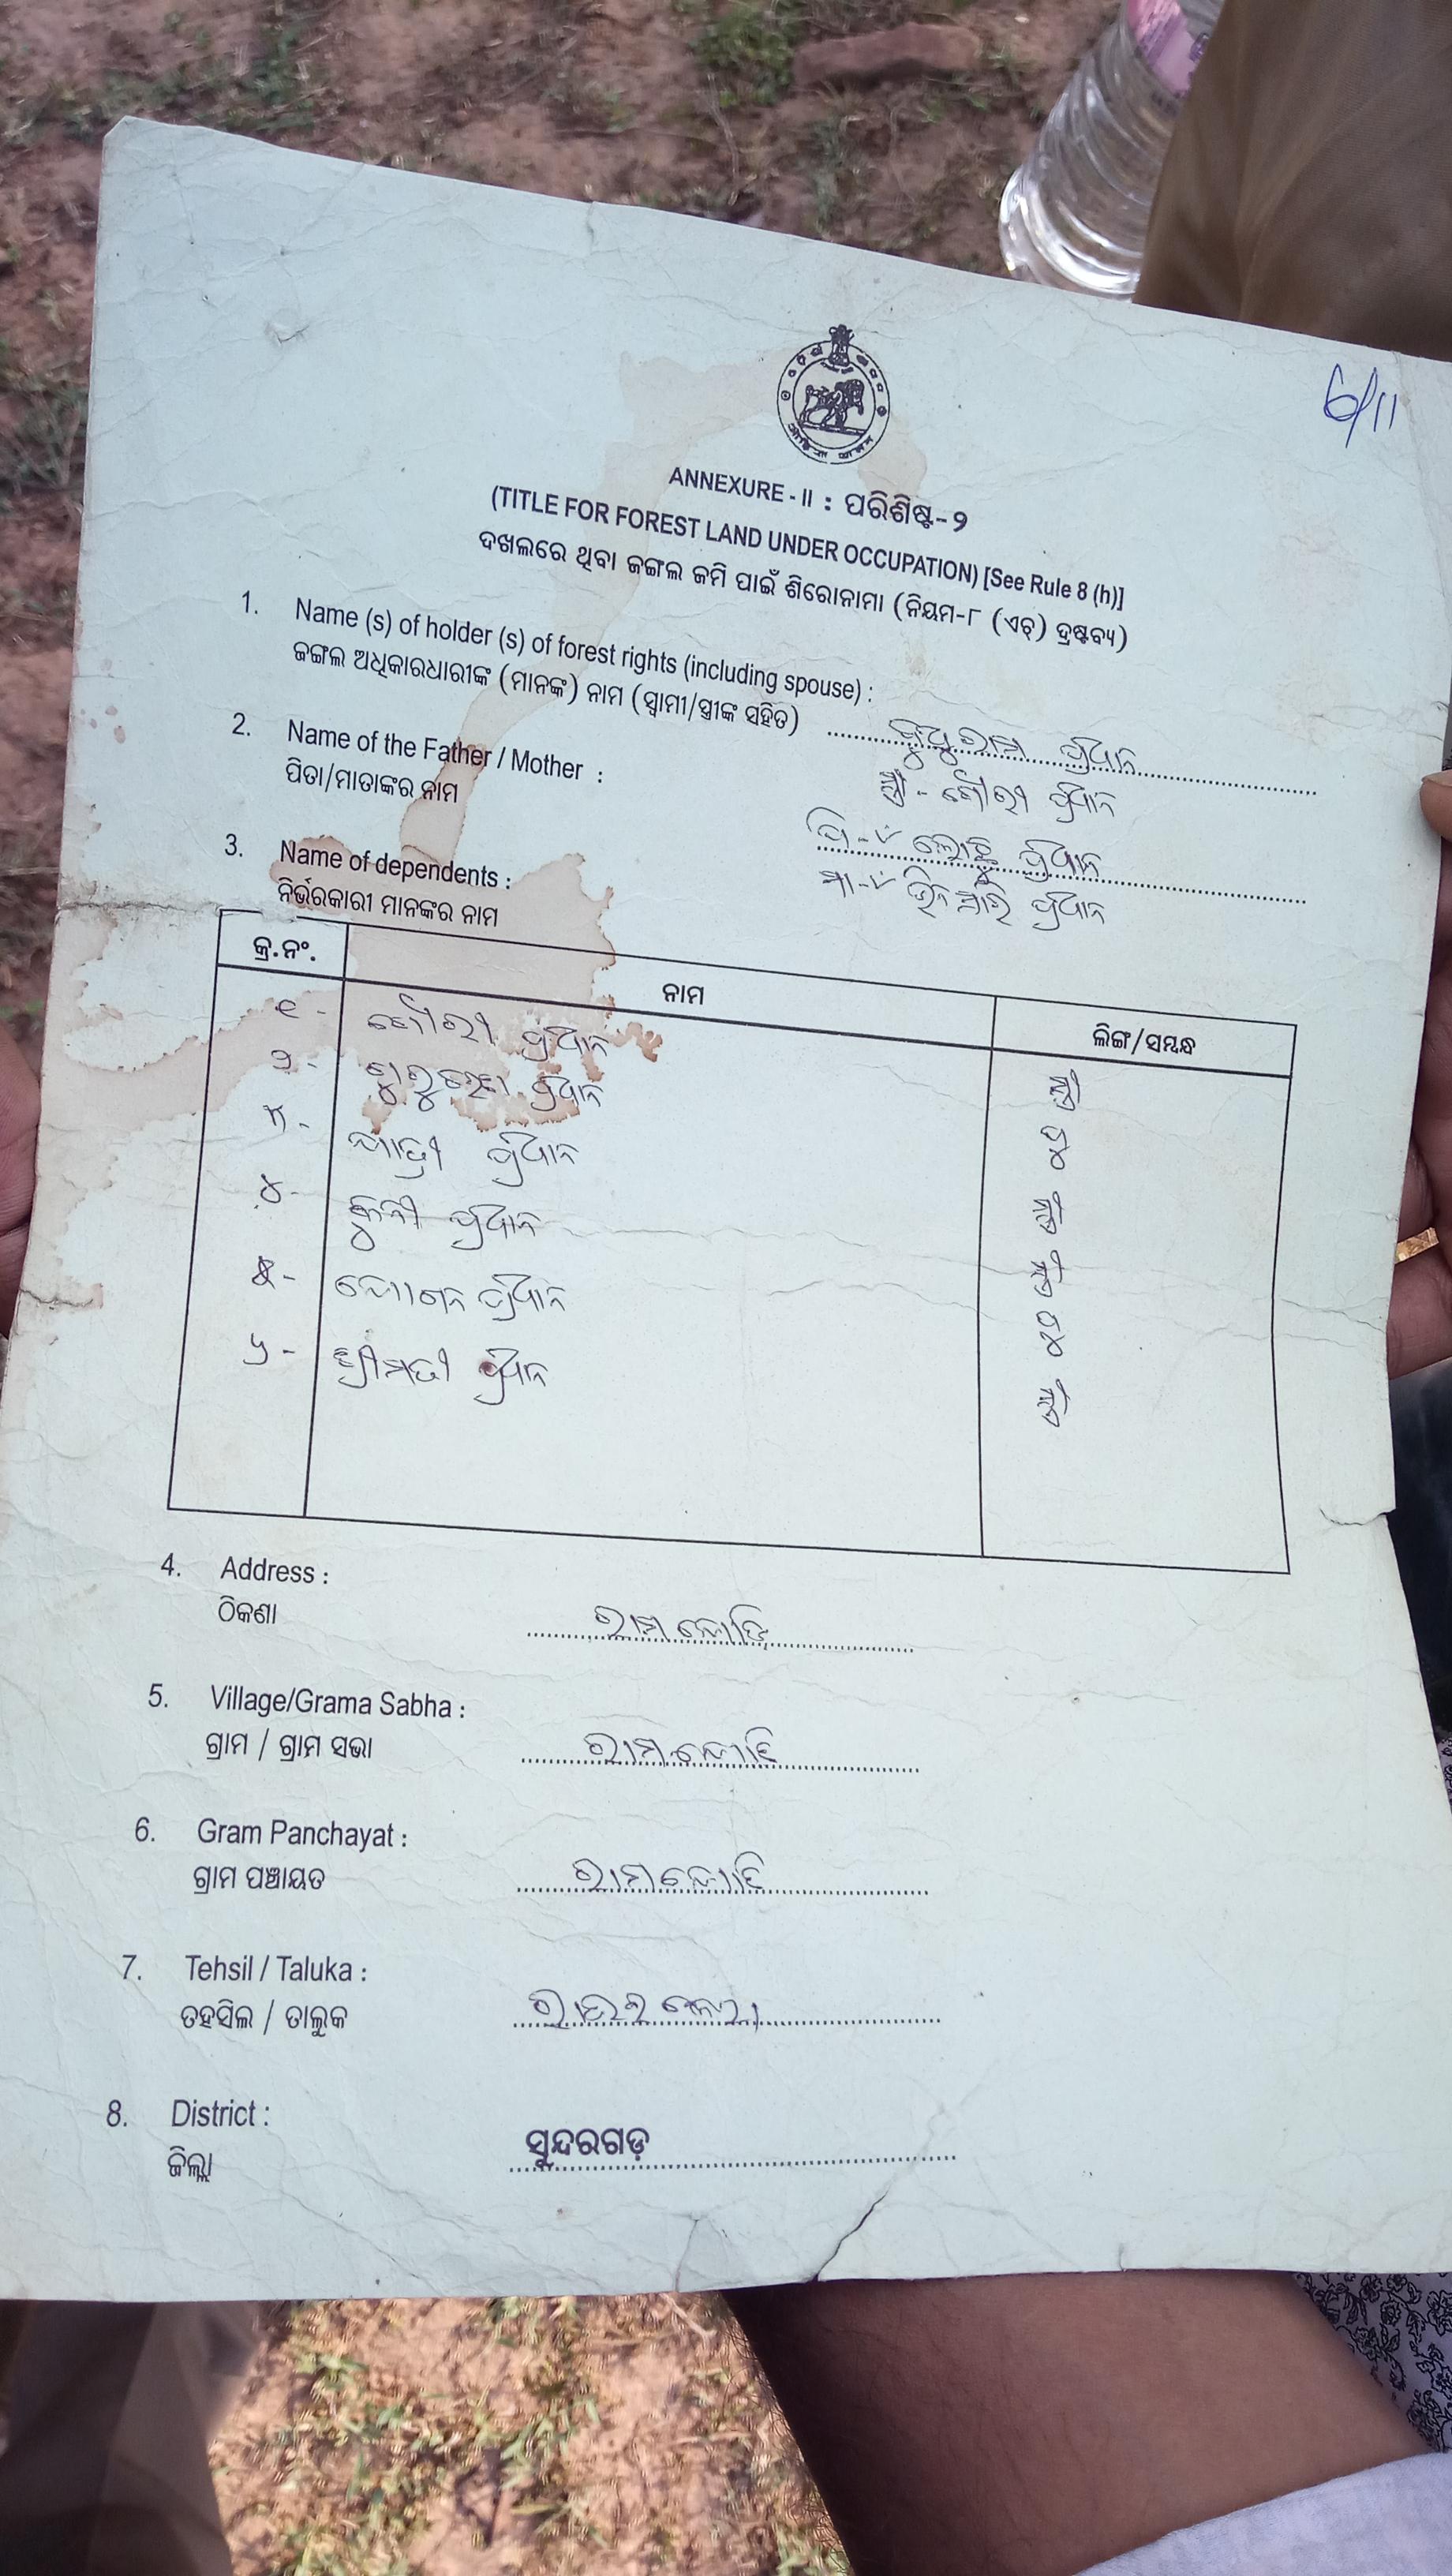 6/11
ANNEXURE - II : ପରିଶିଷ୍ଟ-୨
(TITLE FOR FOREST LAND UNDER OCCUPATION) [See Rule 8 (h)]
ଦଖଲରେ ଥିବା ଜଙ୍ଗଲ ଜମି ପାଇଁ ଶିରୋନାମା (ନିୟମ-୮ (ଏଚ୍) ଦ୍ରଷ୍ଟବ୍ୟ)
1. Name (s) of holder (s) of forest rights (including spouse) :
ଜଙ୍ଗଲ ଅଧିକାରଧାରୀଙ୍କ (ମାନଙ୍କ) ନାମ (ସ୍ୱାମୀ/ସ୍ତ୍ରୀଙ୍କ ସହିତ) ବୁଧୁରାମ ପ୍ରଧାନ
ସ୍ତ୍ରୀ - ଗୌରୀ ପ୍ରଧାନ
2. Name of the Father / Mother :
ପିତା/ମାତାଙ୍କର ନାମ
ପି - ପ୍ରଧାନ
ମା - ପ୍ରଧାନ
3. Name of dependents :
ନିର୍ଭରକାରୀ ମାନଙ୍କର ନାମ
କ୍ର.ନଂ. ନାମ ଲିଙ୍ଗ/ସମ୍ବନ୍ଧ
୧ - ଗୌରୀ ପ୍ରଧାନ ସ୍ତ୍ରୀ
୨ - ପ୍ରଧାନ
୩ - ପ୍ରଧାନ
୪ - କୁନୀ ପ୍ରଧାନ
୫ - ପ୍ରଧାନ
୬ - ଶ୍ରୀମତୀ ପ୍ରଧାନ
4. Address :
ଠିକଣା
5. Village/Grama Sabha :
ଗ୍ରାମ / ଗ୍ରାମ ସଭା
6. Gram Panchayat :
ଗ୍ରାମ ପଞ୍ଚାୟତ
7. Tehsil / Taluka :
ତହସିଲ / ତାଲୁକ
8. District :
ଜିଲ୍ଲା ସୁନ୍ଦରଗଡ଼